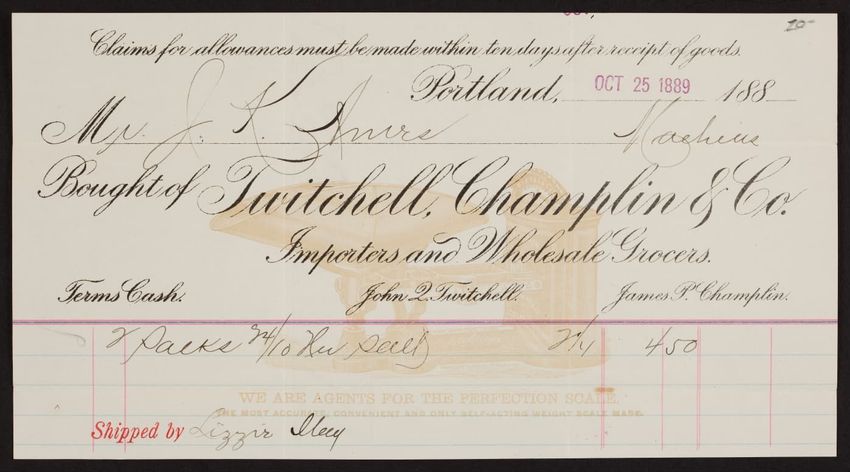 20-
Claims for allowances must be made within ten days after receipt of goods.
Portland, OCT 25 1889 188
Mr. J. K. Ames Machias
Bought of Twitchell, Champlin & Co.
Importers and Wholesale Grocers.
Terms Cash. John Q. Twitchell. James P. Champlin.
2 Sacks 24/10 Salt 2 1/4 4 50
WE ARE AGENTS FOR THE PERFECTION SCALE.
THE MOST ACCURATE, CONVENIENT AND ONLY SELF-ACTING WEIGHT SCALE MADE.
Shipped by Lizzie May